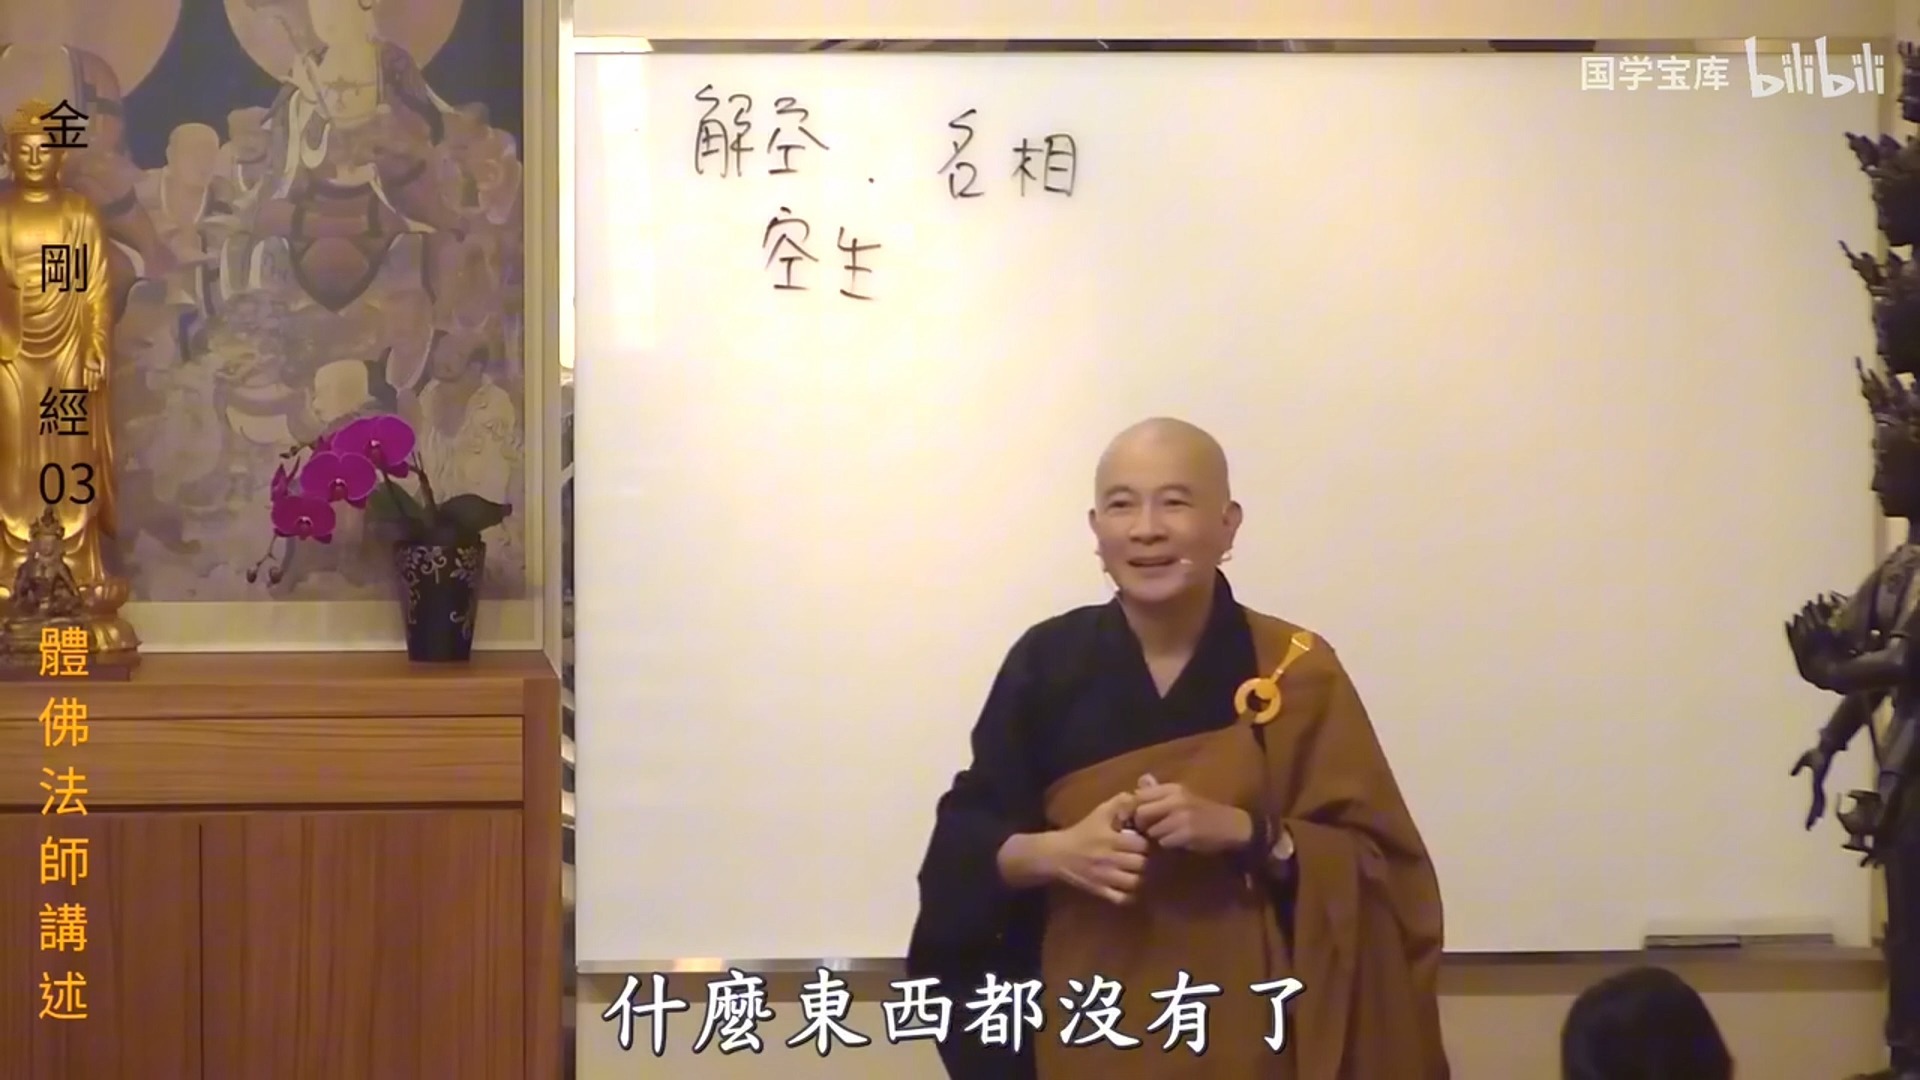 国学宝库 bilibili
解空．名相
空生
金剛經03
體佛法師講述
什麼東西都沒有了